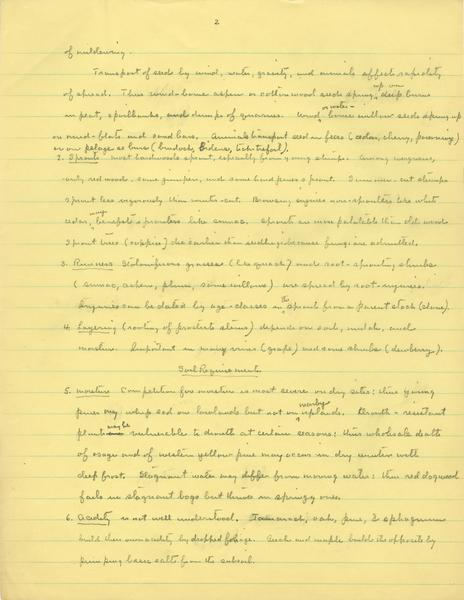 2
of mildewing.
Transport of seeds by wind, water, gravity, and animals affects rapidity
of spread. Thus wind-borne aspen or cottonwood seeds spring up on deep burns
in peat, spoilbanks, and dumps of quarries. Wind or water-borne willow seeds spring up
on mud-flats and sand bars. Animals transport seed in feces (cedar, cherry, poison ivy)
or on pelage as burs (burdock, Bidens, tick trefoil).
2. Sprouts most hardwoods sprout, especially from young stumps. Among evergreens,
only redwoods, some junipers, and some hard pines sprout. Summer-cut stumps
sprout less vigorously than winter-cut. Browsing injures non-sprouters like white
cedar, may benefit sprouters like sumac. Sprouts are more palatable than old wood.
Sprout trees (coppice) die earlier than seedlings because fungi are admitted.
3. Runners Stoloniferous grasses (like quack) and root-sprouting shrubs
(sumac, acacia, plum, some willows) are spread by root-injuries.
Injuries can be dated by age-classes in the sprouts from a parent stock (clone).
4. Layering (rooting of prostrate stems) depends on soil, mulch, and
moisture. Important in many vines (grape) and some shrubs (dewberry).
Soil Requirements
5. moisture Competition for moisture is most severe on dry sites: thus young
pines may whip sod on lowlands but not on nearby uplands. Drouth-resistant
plants may be vulnerable to drouth at certain seasons: thus wholesale deaths
of osage and of western yellow pine may occur in dry winter with
deep frost. Stagnant water may differ from moving water: thus red dogwood
fails in stagnant bogs but thrives in springy ones.
6. Acidity is not well understood. Tamarack, oak, pine, & sphagnum
build their own acidity by dropped foliage. Beech and maple build the opposite by
pumping basic salts from the subsoil.